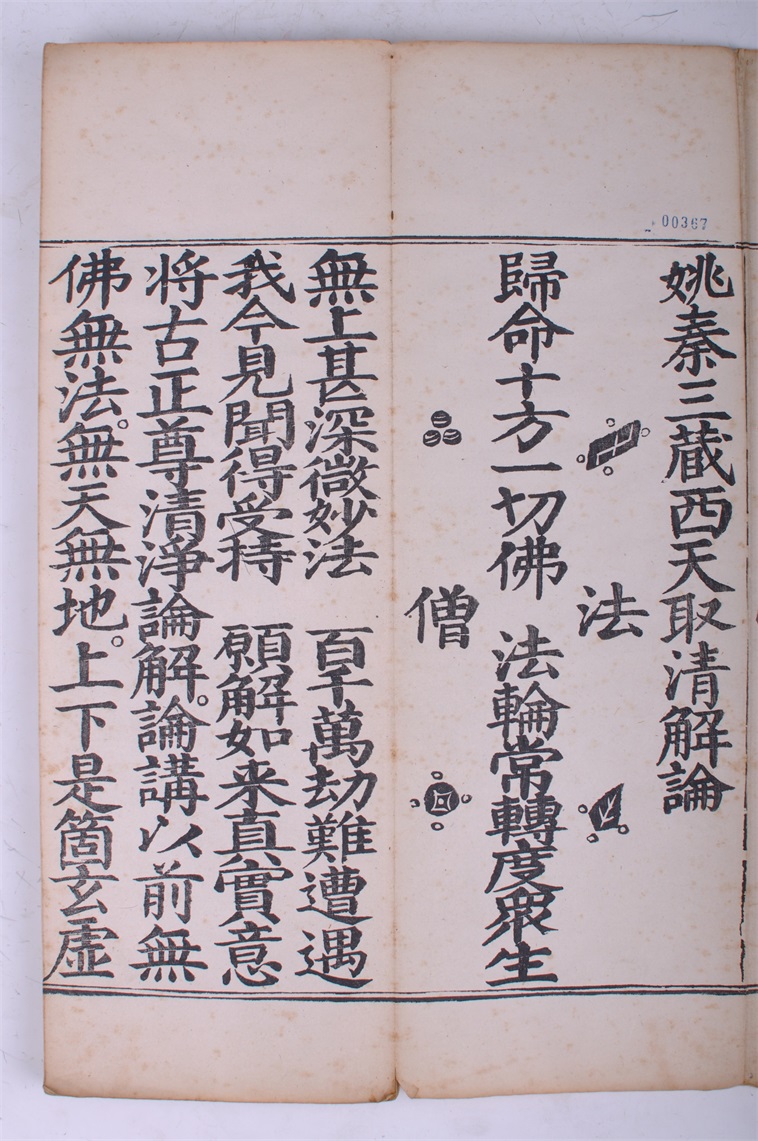 00367
姚秦三蔵西天取清解論
法
歸命十方一切佛 法輪常轉度衆生
僧
無上甚深微妙法 百千萬劫難遭遇
我今見聞得受持 願解如来真實意
将古正尊清淨論解。論講以前無
佛無法。無天無地。上下是箇玄虚